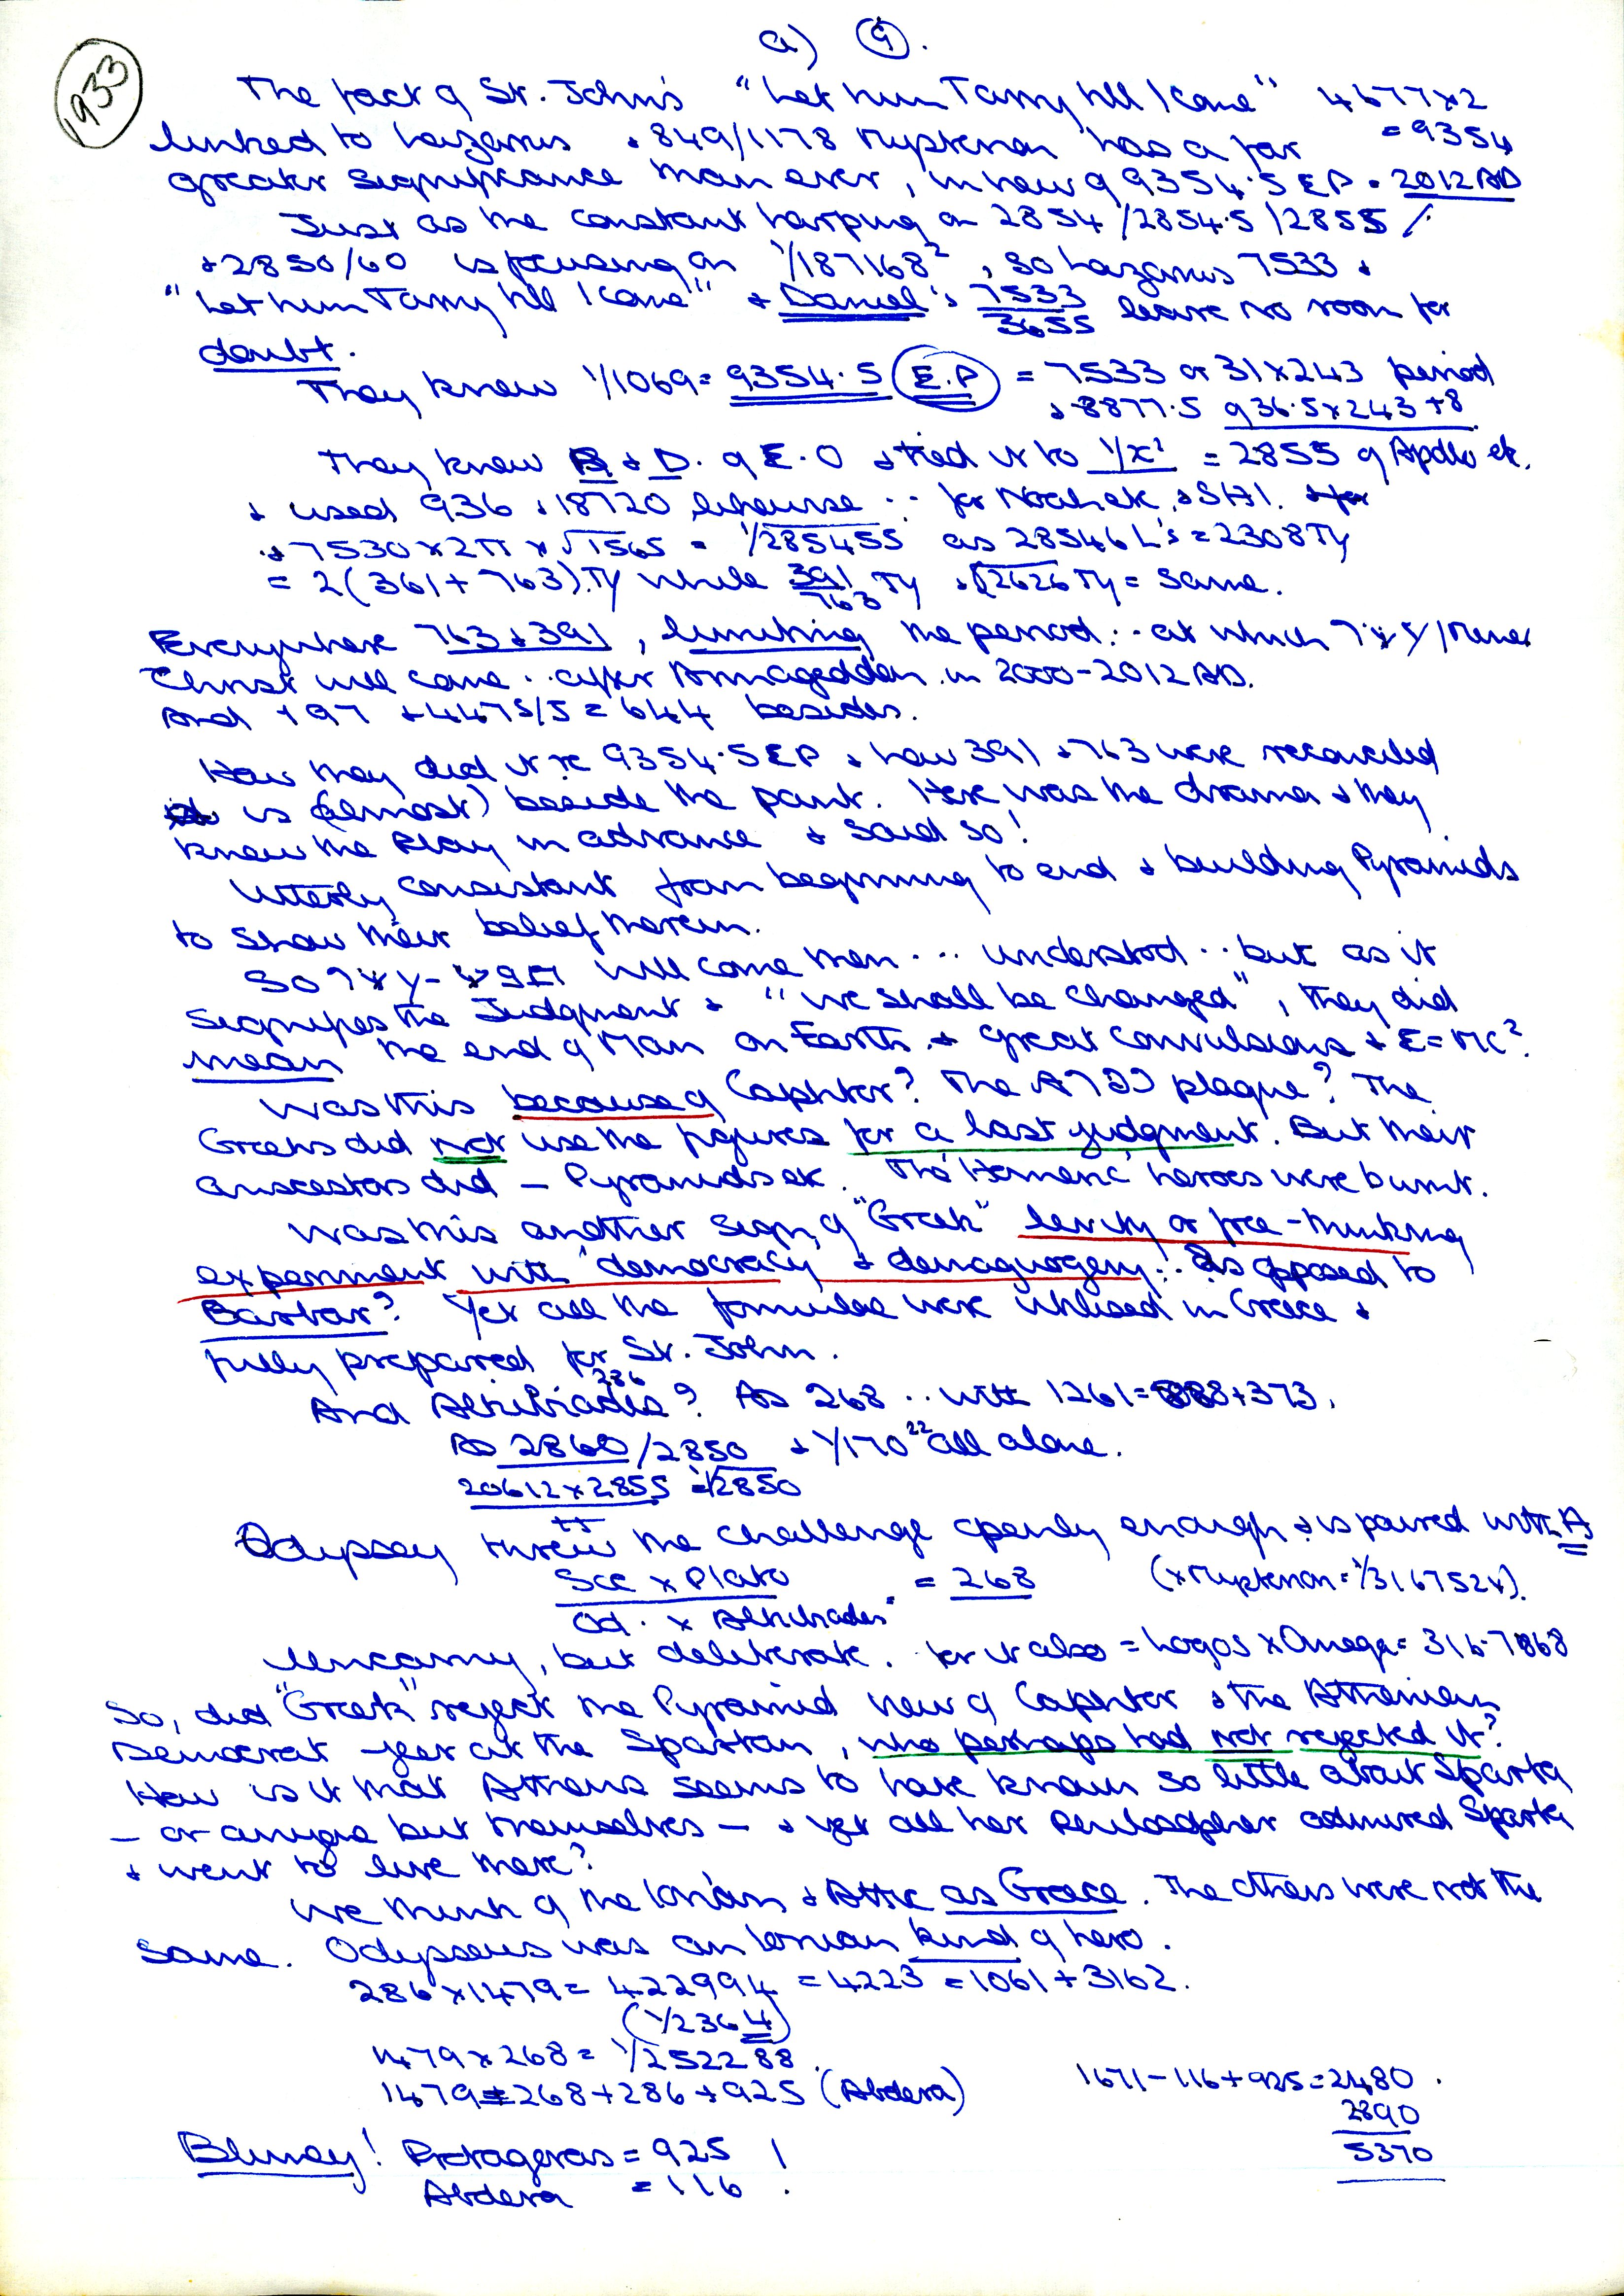 a) 9.
1933
The fact of St. John's "Let him Tarry till I come" 4677x2
linked to Lazarus + 849/1178 Mysterion has a far = 9354
greater significance than ever, in view of 9354.5 EP = 2012 AD
Just as the constant harping on 2854/2854.5/2855/
+2850/60 is focusing on 1/187168², so Lazarus 7533 +
"Let him Tarry till I come" + Daniel's 7533/3655 leave no room for
doubt.
They knew 1/1069 = 9354.5 E.P = 7533 or 31x243 period
+ 8877.5 936.5x243+8
They knew B + D. of E.O + tied it to 1/x² = 2855 of Apollo etc.
+ used 936 + 18720 likewise .. for Noah etc, + SA!
+ 7530x2π x √1565 = 1/285455 as 28546 L's = 2308 Ty
= 2(361+763).Ty while 391/763 Ty + √2626 Ty = same.
Everywhere 763+391, limiting the period .. at which
Christ will come .. after Armageddon in 2000-2012 AD.
And 197 + 4475/5 = 644 besides.
How they did it re 9354.5 EP + how 391 + 763 were reconciled
is (almost) beside the point. Here was the drama + they
knew the Play in advance + said so!
Utterly consistant from beginning to end + building Pyramids
to show their belief therein.
So will come then ... understood .. but as it
signifies the Judgment + "we shall be changed", they did
mean the end of Man on Earth + great convulsions + E=MC².
Was this because of Caphtor? The plague? The
Greeks did not use the figures for a last judgment. But their
anscestors did — Pyramids etc. The 'Homeric' heroes were burnt.
Was this another sign of "Greek" levity or free-thinking
experiment with 'democracy' + demaguogery .. As opposed to
Barbar? Yet all the formulae were utilised in Greece +
fully prepared for St. John.
286
And Alkibiades? As 268 .. with 1261=888+373.
As 2860/2850 + 1/170²² all alone.
20612x2855 = √2850
π
Odyssey threw the challenge openly enough + is paired with A
Soc x Plato = 268 (x Mysterion = 1/3167524).
Od. x Alkibiades
Uncanny, but deliberate. For it also = Logos x Omega = 316.7868
So, did "Greek" reject the Pyramid view of Caphtor + the Athenian
Democrat jeer at the Spartan, who perhaps had not rejected it?
How is it that Athens seems to have known so little about Sparta
— or anyone but themselves — + yet all her Philosopher admired Sparta
+ went to live there?
We think of the Ionian + Attic as Greece. The others were not the
same. Odysseus was an Ionian kind of hero.
286x1479 = 422994 = 4223 = 1061+3162.
(1/2364)
1479x268 = 1/252288.
1479=268+286+925 (Abdera) 1671-116+925=2480.
2890
5370
Blimey! Protagoras = 925 !
Abdera = 116 .